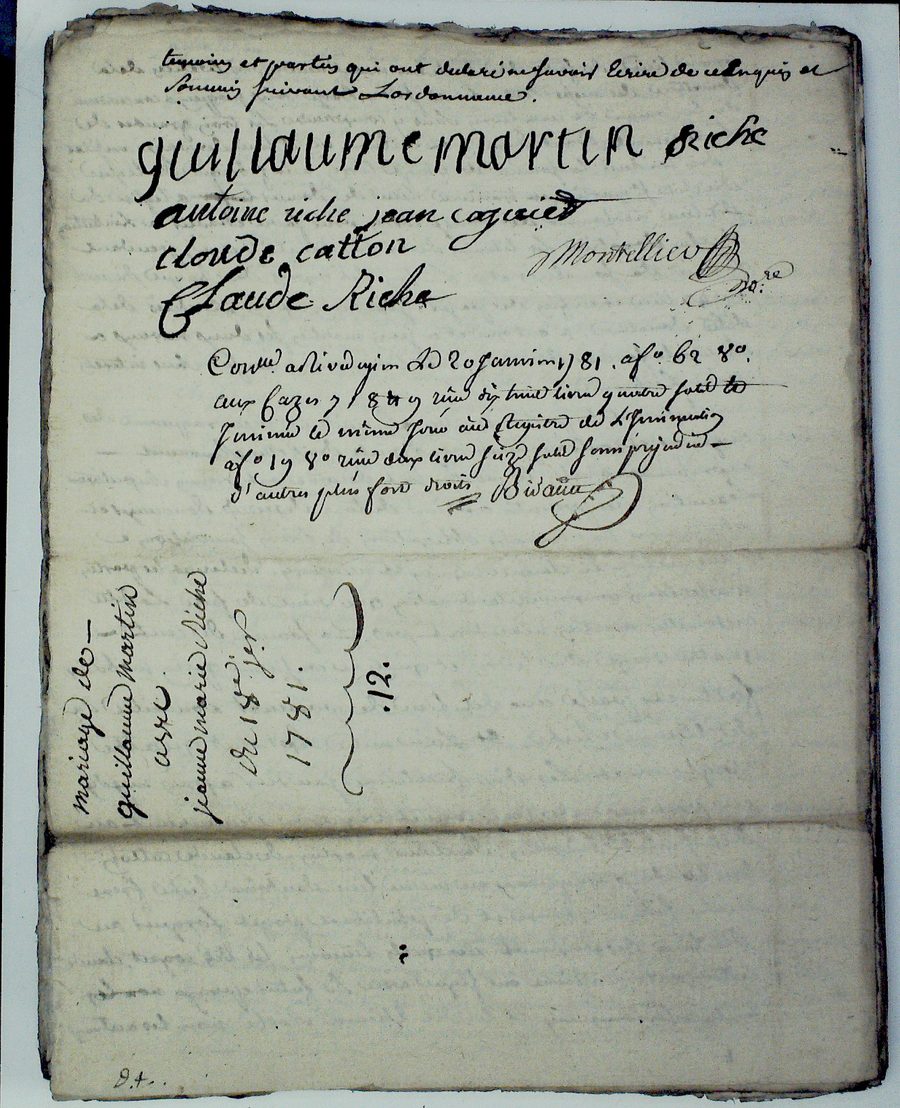 temoins et parties qui ont declaré ne savoir Ecrire de ce Enquis et
Sommés suivant Lordonnance.
guillaume martin Riche
antoine riche jean coguiet
cloude catton
Montellier
No.re
Claude Riche
Con.lle a Rivedegier Le 20 Janvier 1781. a f.o 62 V.o.
aux Cazes 7 8 & 9 reçu dix livres quatre sols
Insinué le même jour au Registre de L'Insinuation
a f.o 19 V.o reçu deux livres seize sols sans prejudice
d'autres plus fort droits
mariage de
guillaume martin
avec
jeanne marie Riche
du 18e jer
1781.
.12.